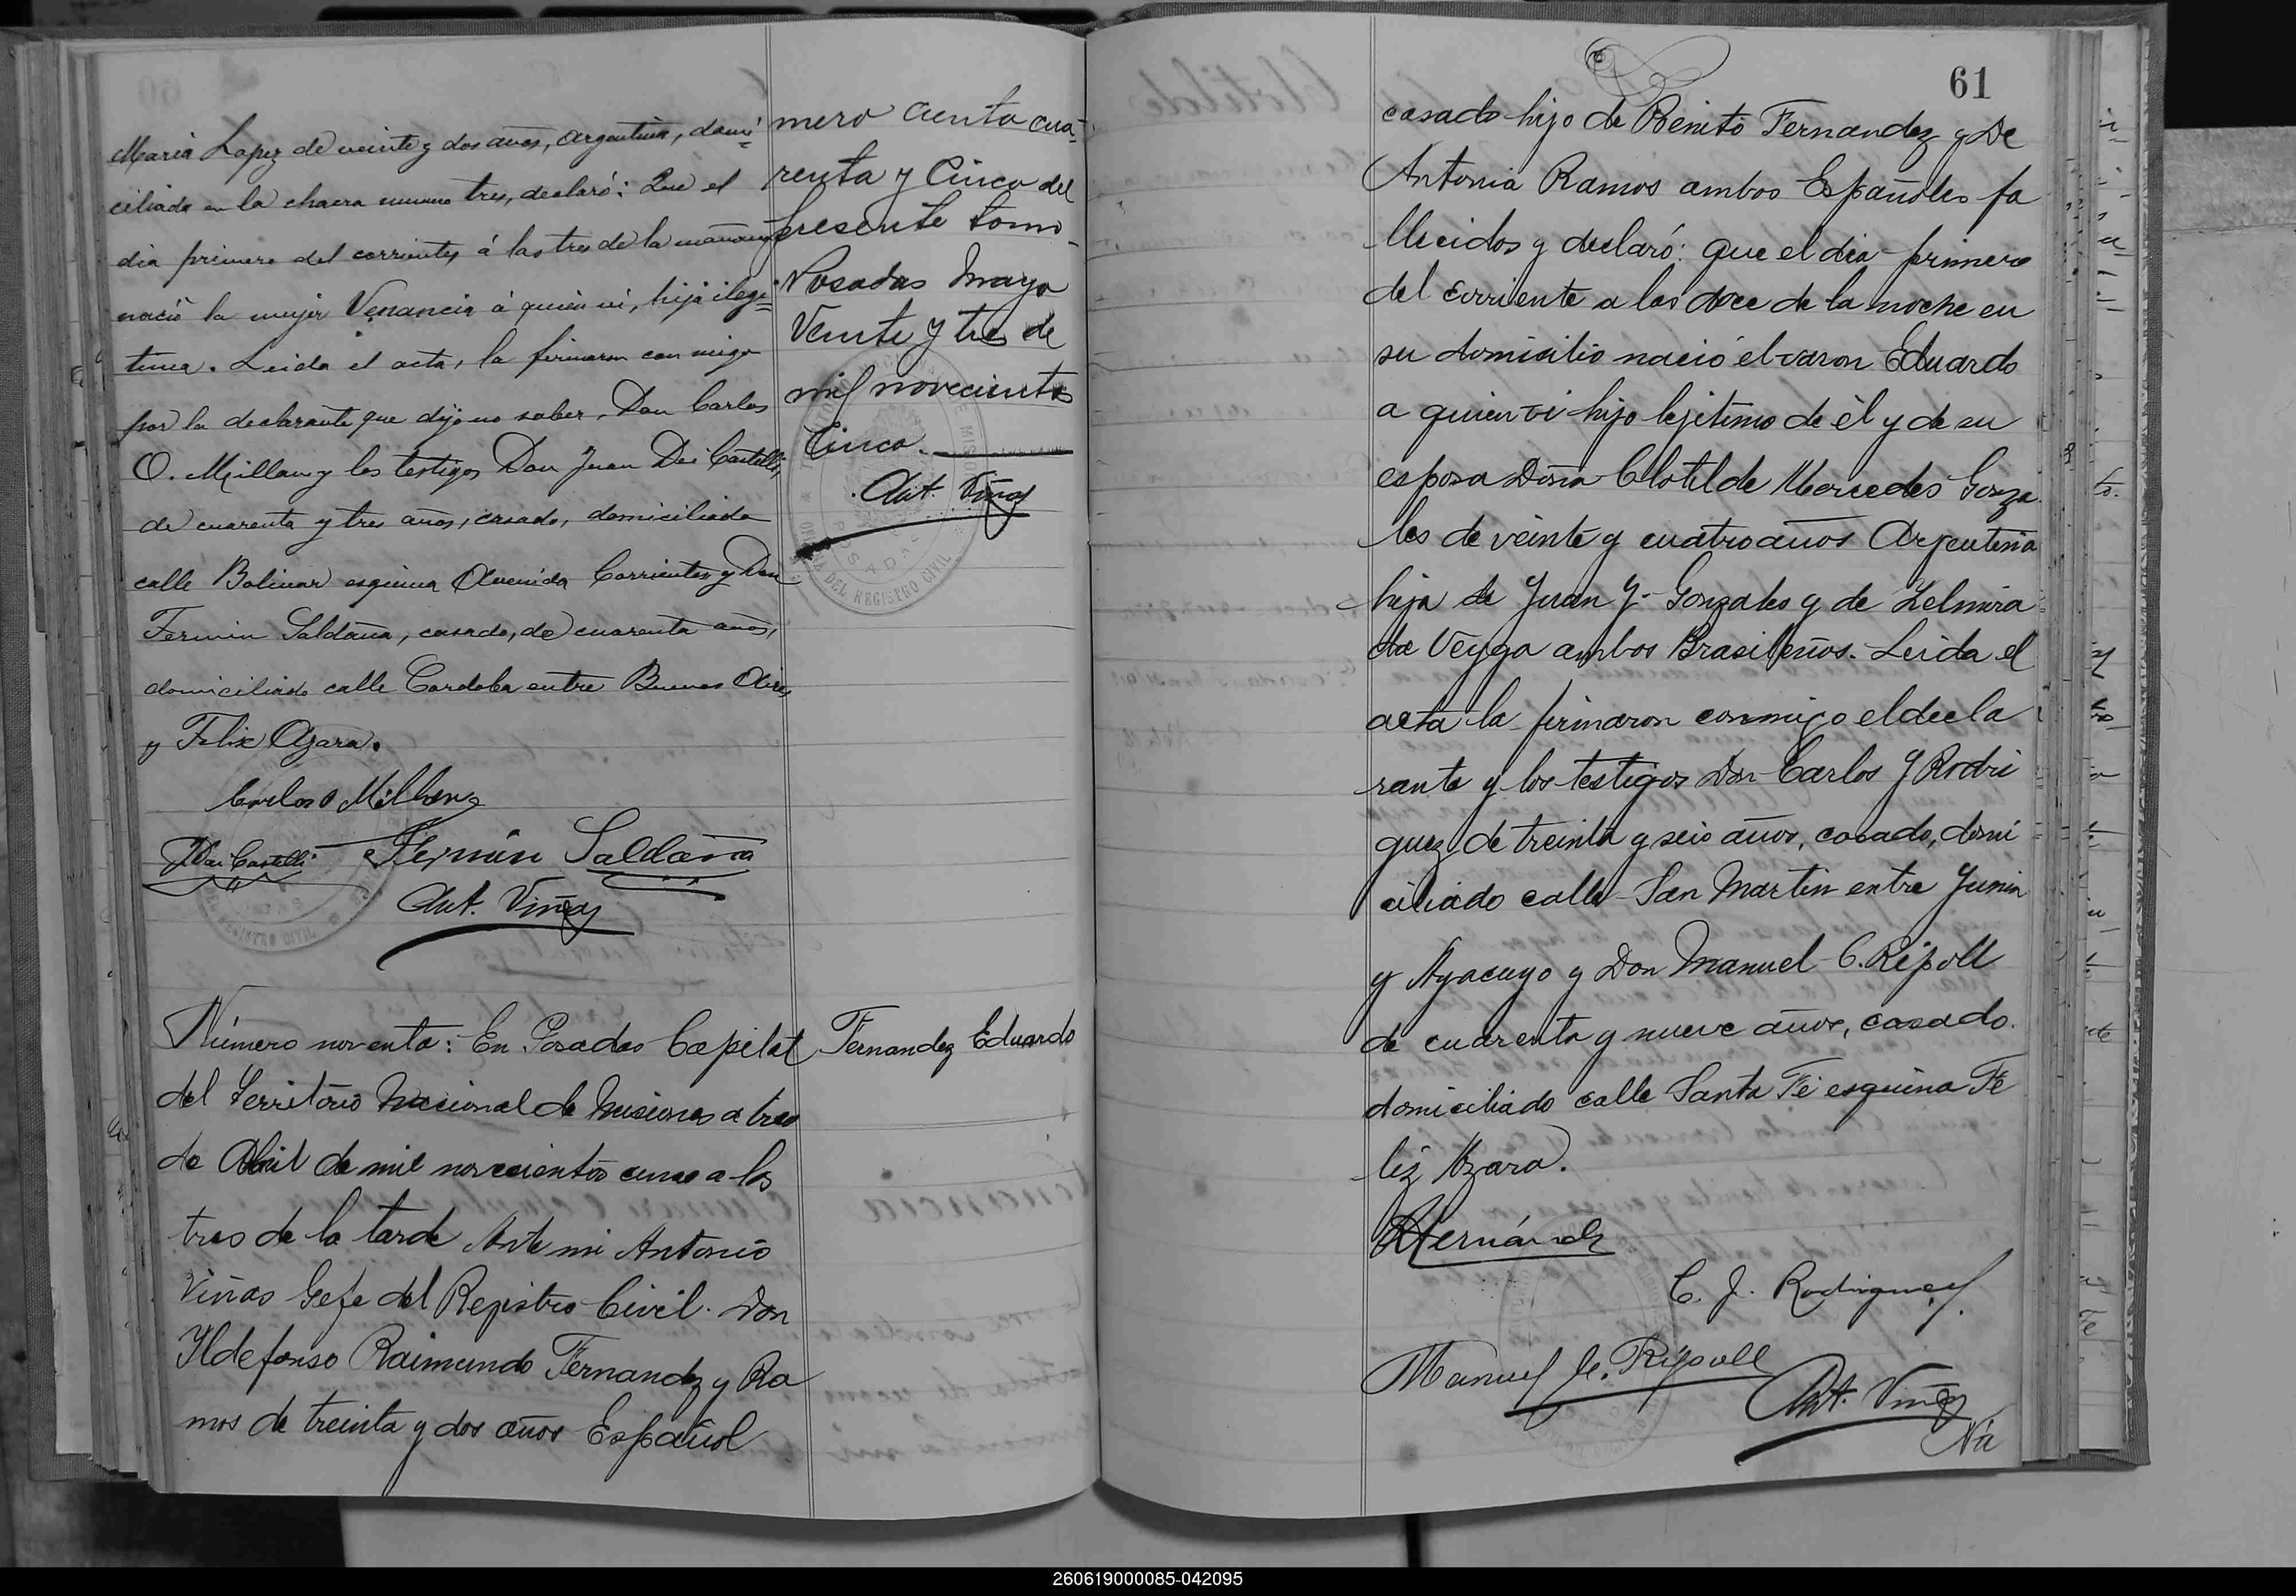 Maria Lopez de veinte y dos años, argentina, domi=
ciliada en la chacra numero tres, declaró: Que el
dia primero del corriente, á las tres de la mañana
nació la mujer Venancia á quien ví, hija ilegi=
tima. Leida el acta, la firmaron conmigo
por la declarante que dijo no saber, Don Carlos
O. Millan y los testigos Don Juan Dei Castelli,
de cuarenta y tres años, casado, domiciliado
calle Bolivar esquina Avenida Corrientes y Don
Fermin Saldaña, casado, de cuarenta años,
domiciliado calle Cordoba entre Buenos Aires
y Felix Azara.
Carlos O Millan
J Dei Castelli Fermín Saldaña
Ant. Viñas
mero ciento cua-
renta y Cinco del
presente tomo-
Posadas Mayo
Veinte y tres de
mil novecientos
Cinco.
Ant. Viñas
MISIONES
POSADAS
OFICINA DEL REGISTRO CIVIL
REGISTRO CIVIL
Número noventa: En Posadas Capital
del Territorio Nacional de Misiones a tres
de Abril de mil novecientos cinco a las
tres de la tarde Ante mi Antonio
Viñas Gefe del Registro Civil. Don
Yldefonso Raimundo Fernandez y Ra
mos de treinta y dos años Español
Fernandez Eduardo
61
casado hijo de Benito Fernandez y De
Antonia Ramos ambos Españoles fa
llecidos y declaró: que el dia primero
del corriente a las doce de la noche en
su domicilio nació el varon Eduardo
a quien vi hijo lejitimo de él y de su
esposa Doña Clotilde Mercedes Gonza
les de veinte y cuatro años Argentina
hija de Juan Y. Gonzales y de Zelmira
da Veyga ambos Brasileños. Leida el
acta la firmaron conmigo el decla
rante y los testigos Don Carlos Y Rodri
guez de treinta y seis años, casado, domi
ciliado calle San Martin entre Junin
y Ayacuyo y Don Manuel C. Ripoll
de cuarenta y nueve años, casado.
domiciliado calle Santa Fé esquina Fe
liz Azara.
C. J. Rodriguez
Manuel C. Ripoll
Ant. Viñas
Nú
260619000085-042095